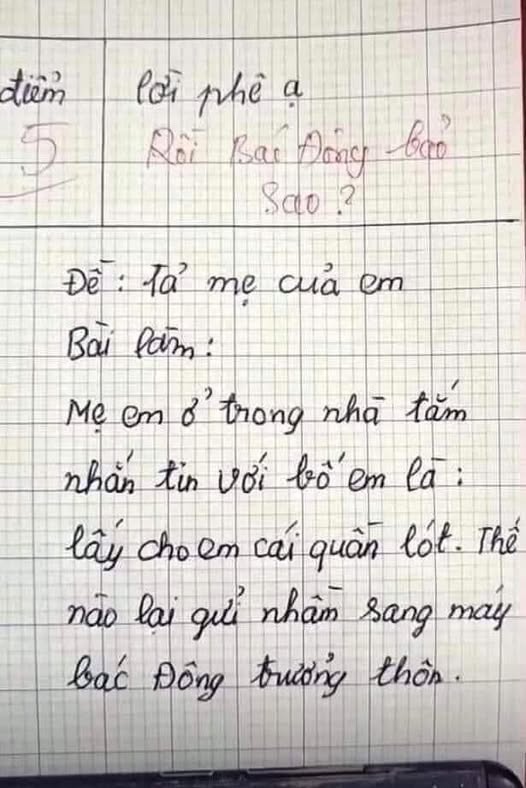 điểm
lời phê ạ
5
Rồi Bác Đông bảo
sao?
Đề: Tả mẹ của em
Bài làm:
Mẹ em ở trong nhà tắm
nhắn tin với bố em là:
lấy cho em cái quần lót. Thế
nào lại gửi nhầm sang máy
bác Đông trưởng thôn.